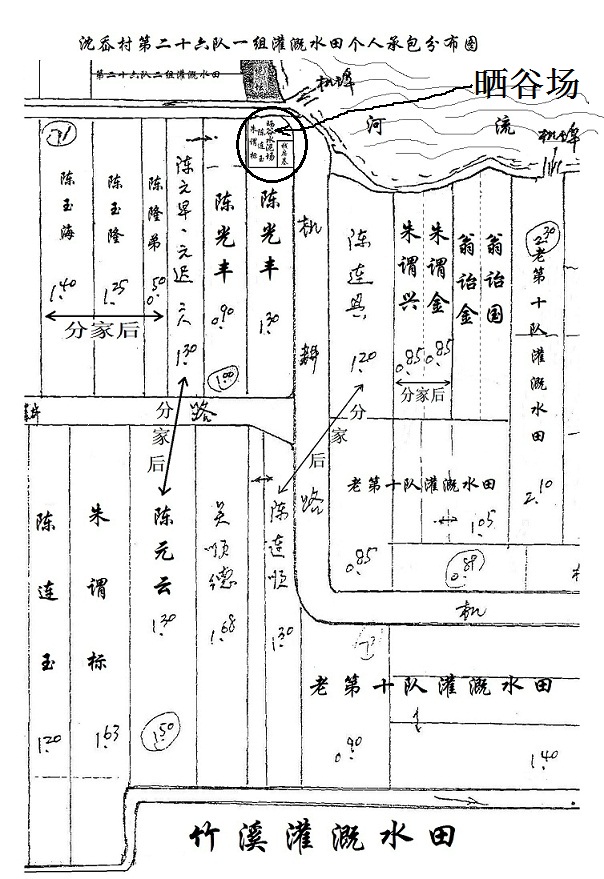 沈岙村第二十六队一组灌溉水田个人承包分布图
第二十六队二组灌溉水田
机埠
晒谷场
河 流
机埠
陈玉海
1.40
陈玉隆
1.25
陈隆弟
0.50
分家后
陈元早、元迟 二人
1.30
陈光丰
0.90
1.00
陈光丰
1.30
朱谓标
陈连玉
机耕路
陈连兴
1.20
朱谓兴
0.85
朱谓金
0.85
分家后
翁诒金
翁诒国
2.30
老第十队灌溉水田
2.10
路
分家后
分家后
老第十队灌溉水田
1.05
0.85
0.89
机
陈连玉
1.20
朱谓标
1.63
陈元云
1.30
1.50
吴顺德
1.68
陈连顺
1.30
老第十队灌溉水田
0.90
1.40
竹溪灌溉水田